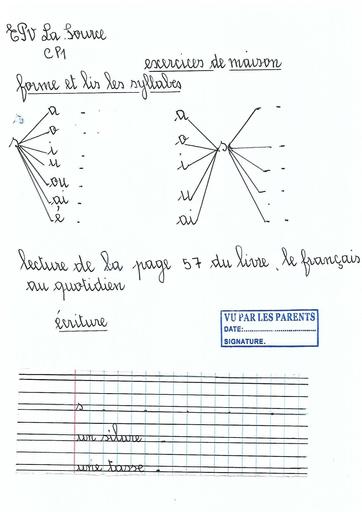 EPV La Source
CP1
exercices de maison
forme et lis les syllabes
s
a -
o -
i -
u -
ou -
ai -
é -
s
a
o
i
u
ai
s
- -
- -
- -
- -
- -
lecture de la page 57 du livre, le français
au quotidien
écriture
VU PAR LES PARENTS
DATE:....................................
SIGNATURE.
s . . . . .
un silure .
une tasse .